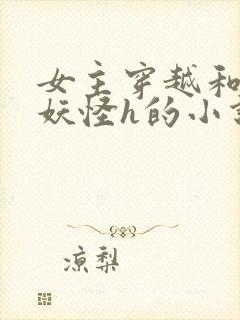 女主穿越和
妖怪h的小
凉梨